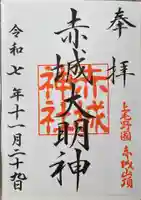 奉拝
上毛野國 赤城山頂
赤城大明神
赤城神社
令和七年十一月二十四日